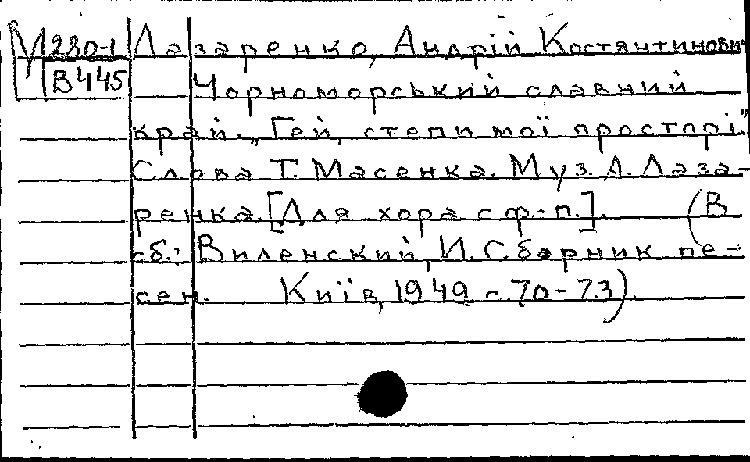 М280-1 Лазаренко, Андрій Костянтинович
В445 Чорноморський славний
край. „Гей, степи мої просторі."
Слова Т. Масенка. Муз. А. Лаза-
ренка. [Для хора с ф-п.]. (В
сб.: Виленский, И. Сборник пе-
сен. Київ, 1949 - 70-73).